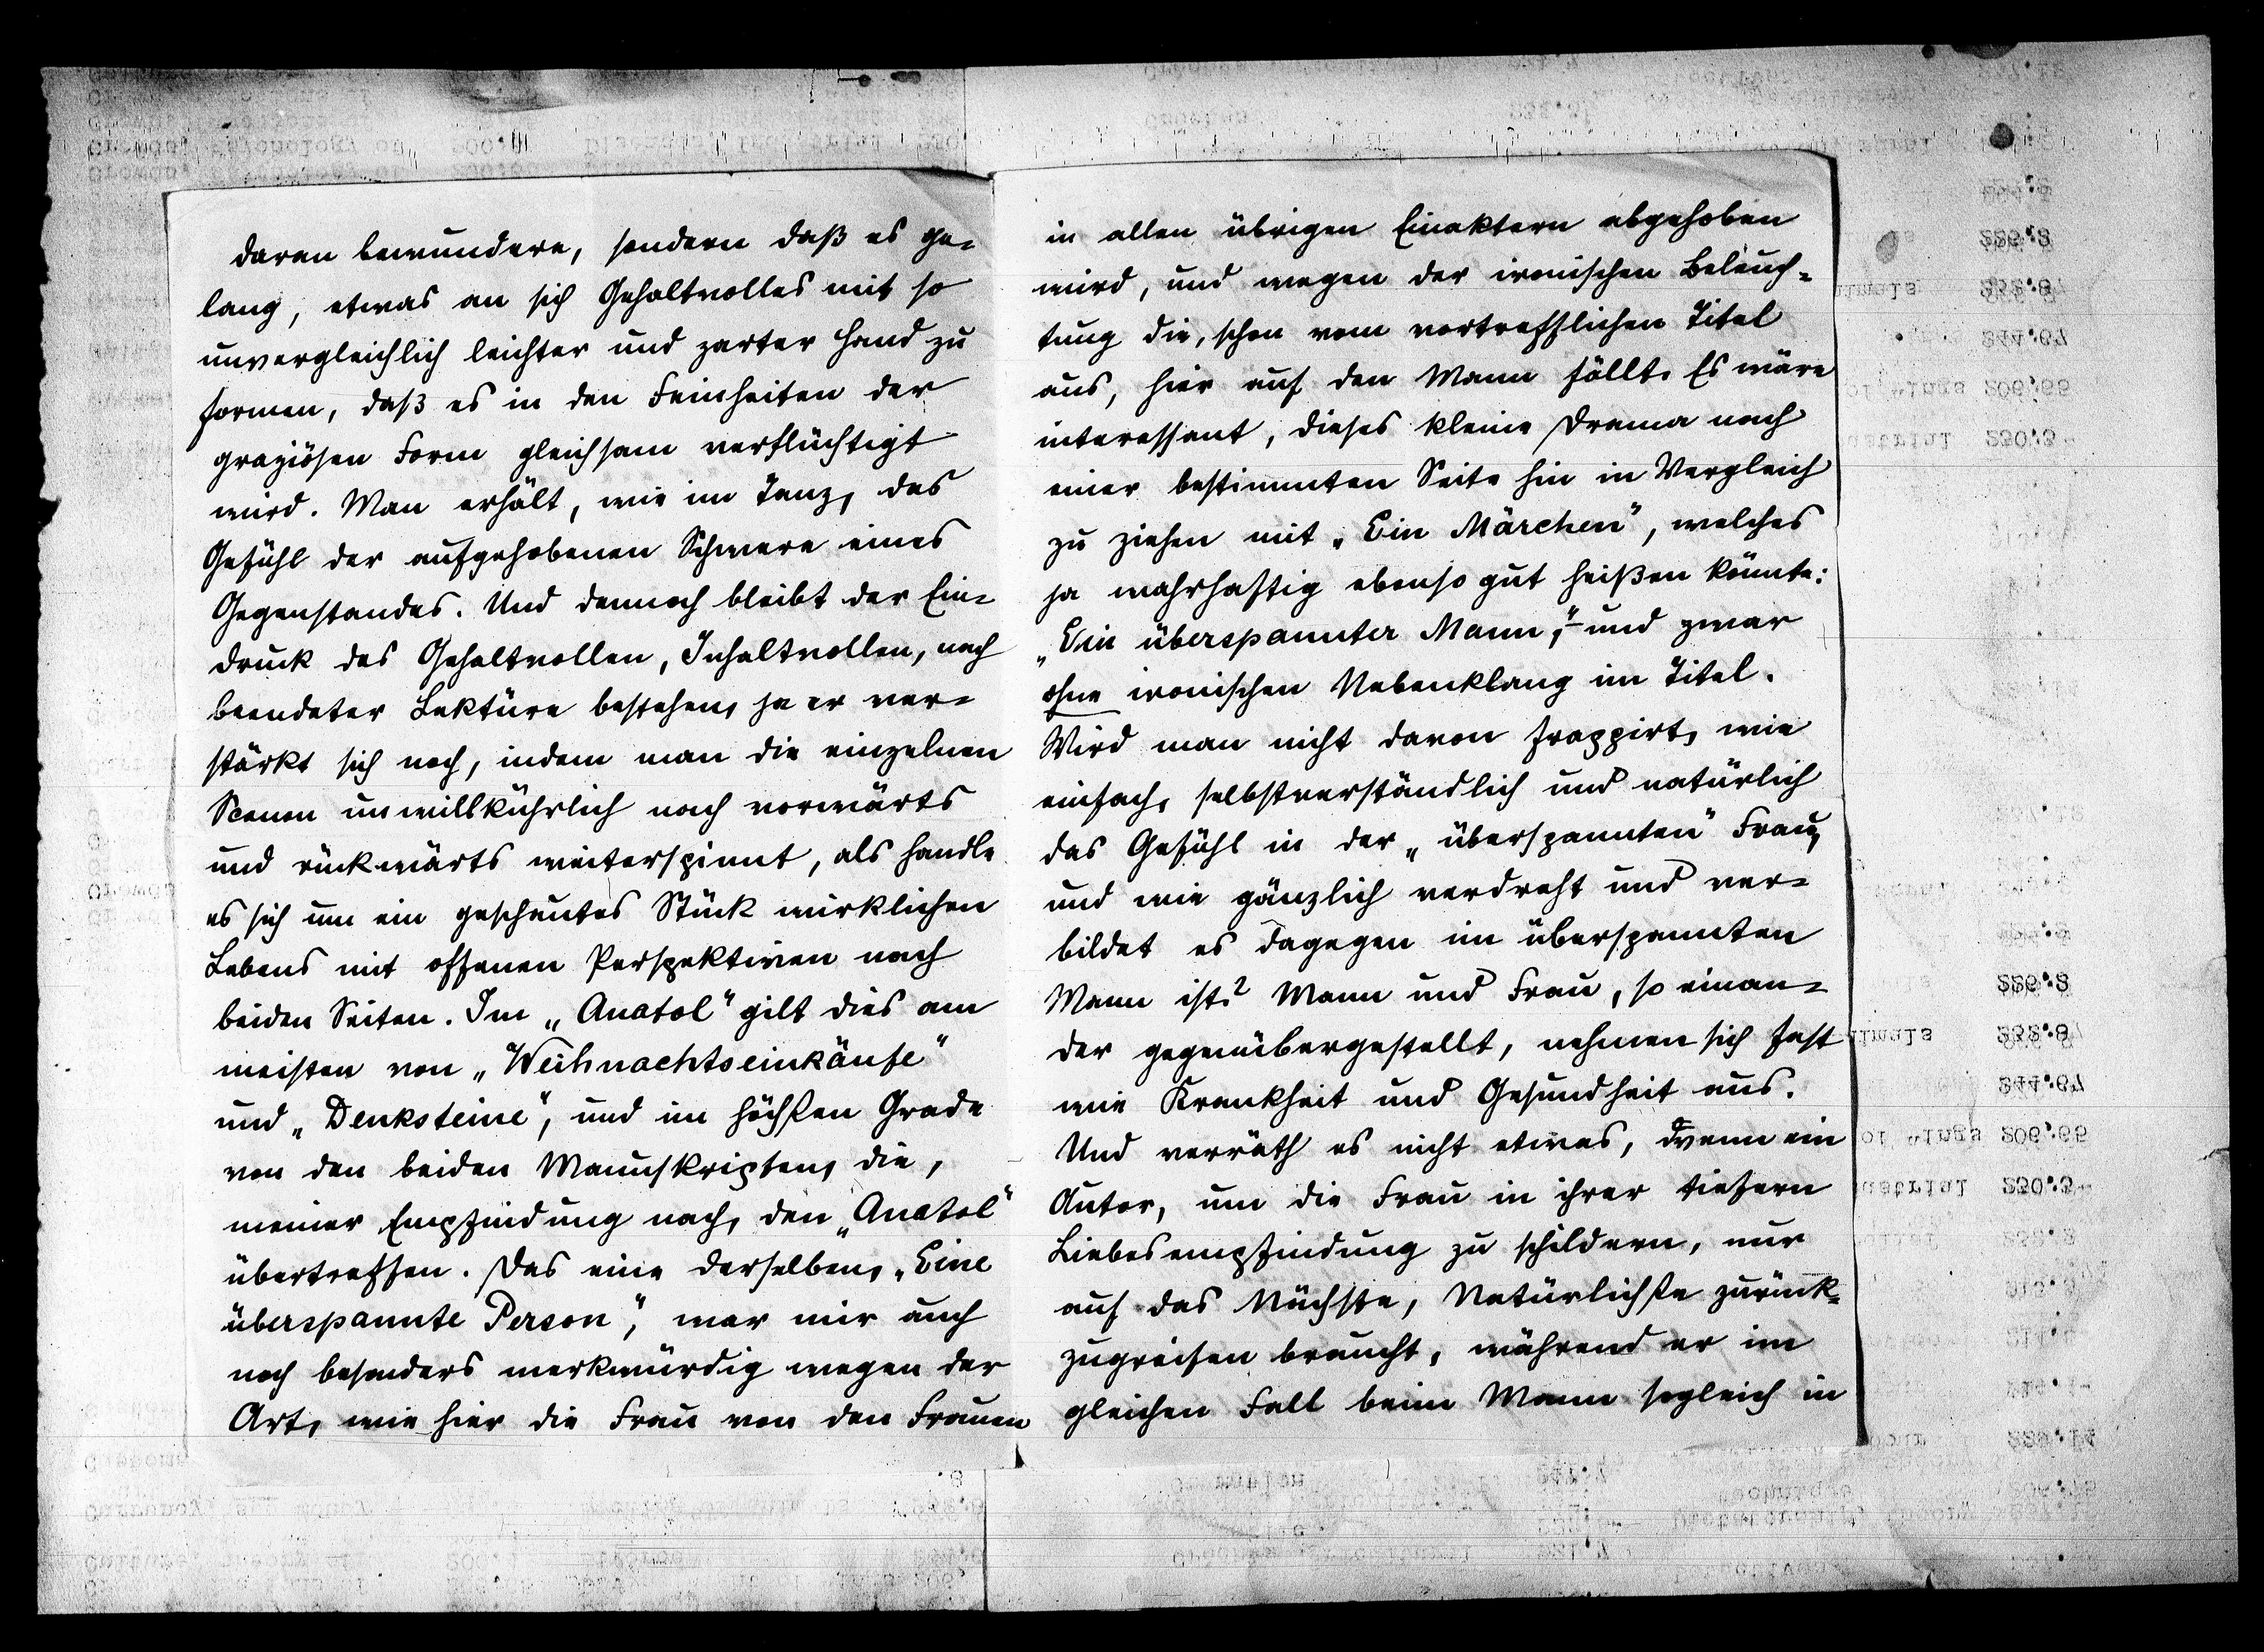 daran bewundere, sondern daß es ge-
lang, etwas an sich Gehaltvolles mit so
unvergleichlich leichter und zarter Hand zu
formen, daß es in den Feinheiten der
graziösen Form gleichsam verflüchtigt
wird. Man erhält, wie im Tanz, das
Gefühl der aufgehobenen Schwere eines
Gegenstandes. Und dennoch bleibt der Ein-
druck des Gehaltvollen, Inhaltvollen, nach
beendeter Lektüre bestehen, ja er ver-
stärkt sich noch, indem man die einzelnen
Scenen unwillkührlich nach vorwärts
und rückwärts weiterspinnt, als handle
es sich um ein geschautes Stück wirklichen
Lebens mit offenen Perspektiven nach
beiden Seiten. Im „Anatol" gilt dies am
meisten von „Weihnachtseinkäufe"
und „Denksteine", und im höchsten Grade
von den beiden Manuskripten, die,
meiner Empfindung nach, den „Anatol"
übertreffen. Das eine derselben, „Eine
überspannte Person", war mir auch
noch besonders merkwürdig wegen der
Art, wie hier die Frau von den Frauen
in allen übrigen Einaktern abgehoben
wird, und wegen der ironischen Beleuch-
tung die, schon vom vortrefflichen Titel
aus, hier auf den Mann fällt. Es wäre
interessant, dieses kleine Drama nach
einer bestimmten Seite hin in Vergleich
zu ziehen mit „Ein Märchen", welches
ja wahrhaftig ebenso gut heißen könnte:
„Ein überspannter Mann", – und zwar
ohne ironischen Nebenklang im Titel.
Wird man nicht davon frappirt, wie
einfach, selbstverständlich und natürlich
das Gefühl in der „überspannten" Frau,
und wie gänzlich verdreht und ver-
bildet es dagegen im überspannten
Mann ist? Mann und Frau, so einan-
der gegenübergestellt, nehmen sich fast
wie Krankheit und Gesundheit aus.
Und verräth es nicht etwas, wenn ein
Autor, um die Frau in ihrer tiefern
Liebesempfindung zu schildern, nur
auf das Nächste, Natürlichste zurück-
zugreifen braucht, während er im
gleichen Fall beim Mann sogleich in